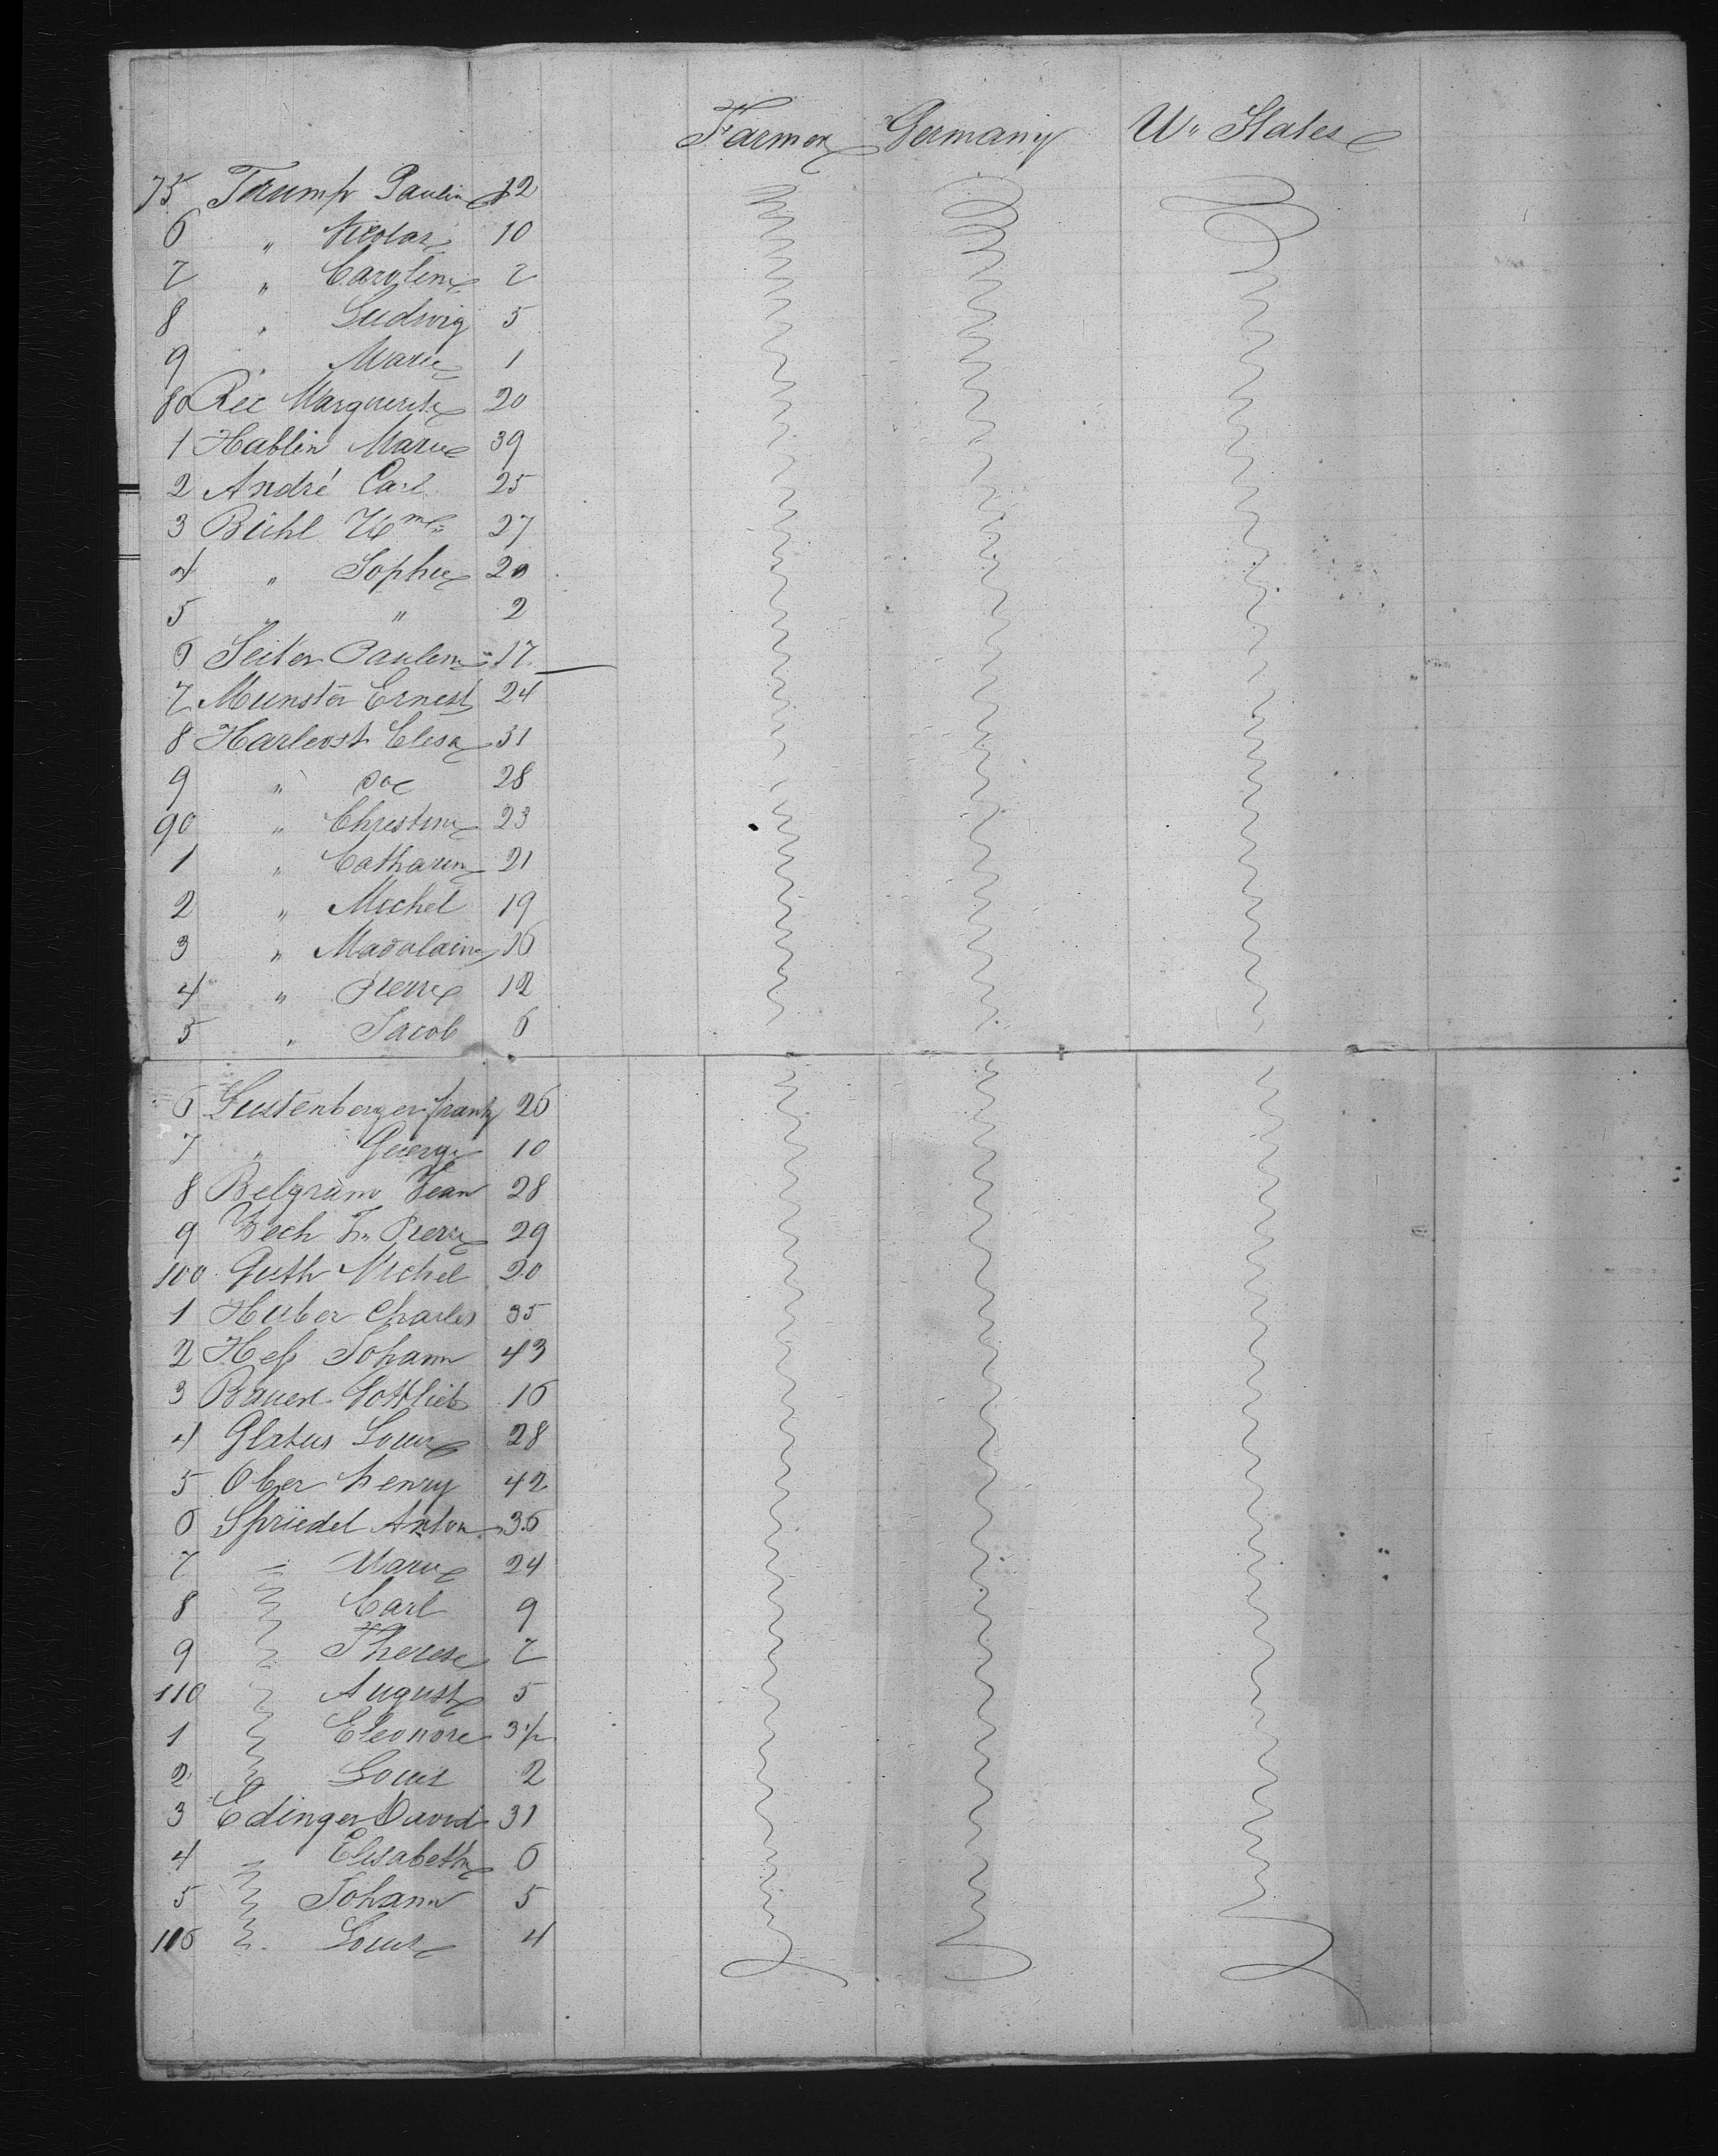 Farmer Germany U" States
75 Trump Paulin 12
6 " Nicolas 10
7 " Carolin 7
8 " Ludwig 5
9 " Marie 1
80 Ree Marguerite 20
1 Hablin Marie 39
2 André Carl 25
3 Buhl 27
4 " Sophie 20
5 " " 2
6 Seiter Paulin 17
7 Munster Ernest 24
8 Harleost Elesa 31
9 " 28
90 " Christine 23
1 " Catharin 21
2 " Michel 19
3 " Madalaine 16
4 " Pierre 12
5 " Jacob 6
6 Lustenberger frantz 26
7 " George 10
8 Belgrand Jean 28
9 Zech Pierre 29
100 Guth Michel 20
1 Huber Charles 35
2 Heß Johann 43
3 Bauer Gottlieb 16
4 Glatus Louise 28
5 Ober henry 42
6 Spriedel Anton 36
7 " Marie 24
8 " Carl 9
9 " Therese 7
110 " August 5
1 " Eleonore 3 1/2
2 " Louis 2
3 Edinger David 31
4 " Elisabeth 6
5 " Johann 5
116 " Louise 4